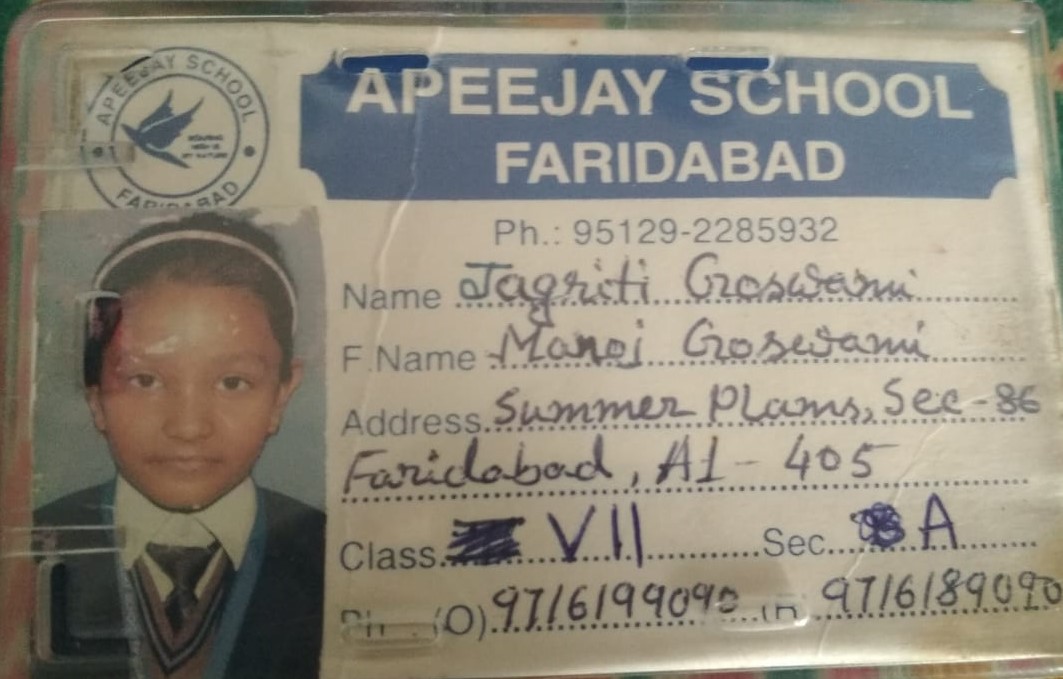 APEEJAY SCHOOL
FARIDABAD
SOARING
HIGH IS
MY NATURE
APEEJAY SCHOOL
FARIDABAD
Ph.: 95129-2285932
Name Jagriti Goswami
F.Name Manoj Goswami
Address Summer Plams, Sec-86
Faridabad, A1-405
Class VII Sec. A
Ph (O) 9716199090 (R) 9716189090